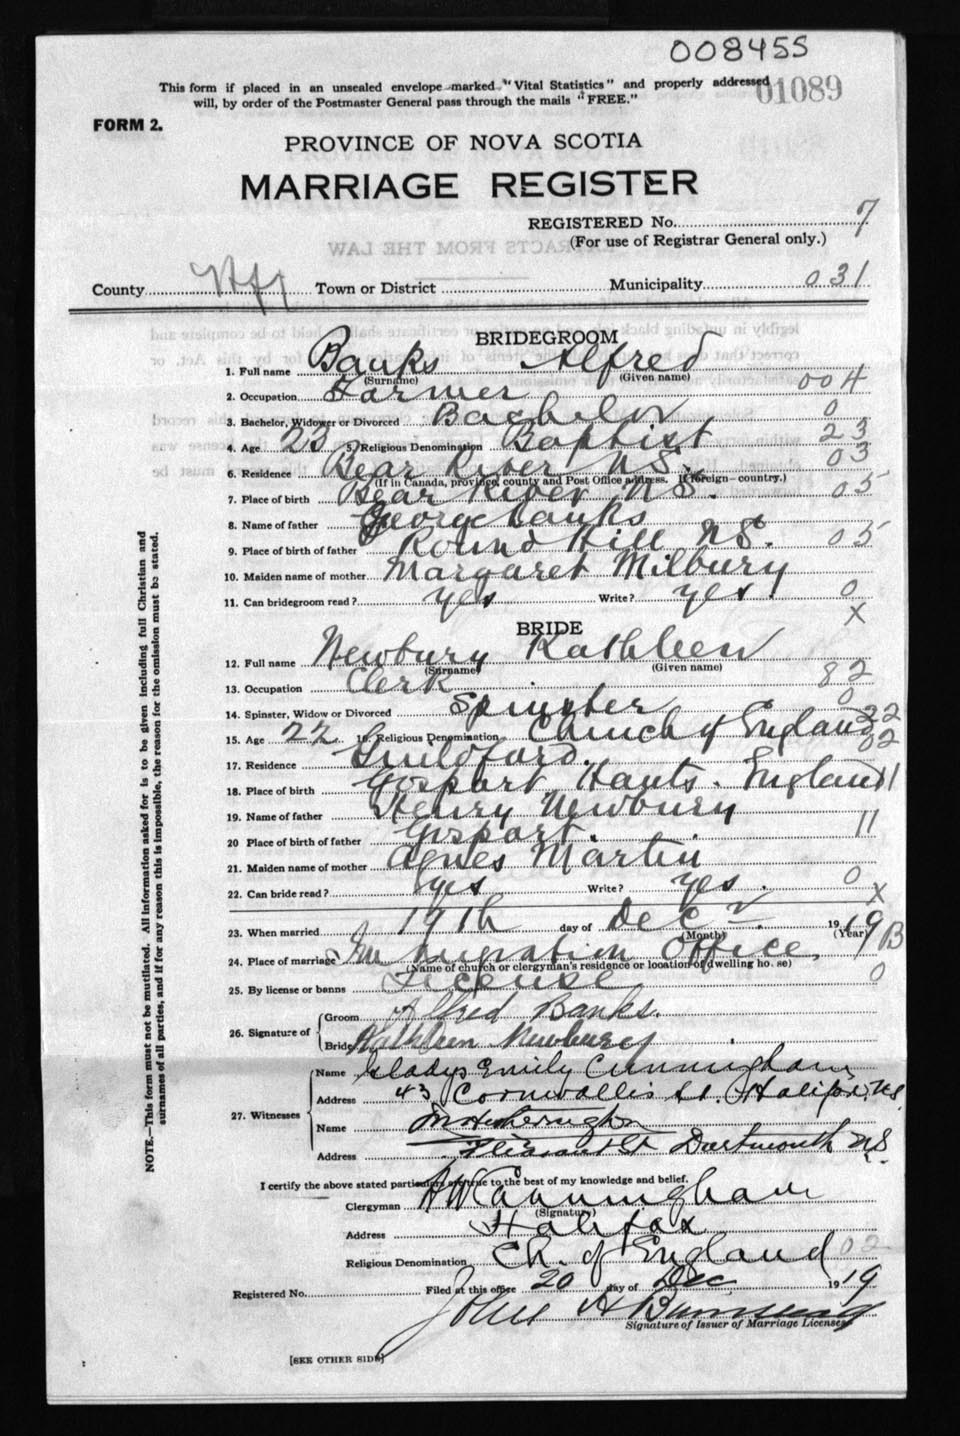 008455
This form if placed in an unsealed envelope marked "Vital Statistics" and properly addressed 01089
will, by order of the Postmaster General pass through the mails "FREE."
FORM 2.
PROVINCE OF NOVA SCOTIA
MARRIAGE REGISTER
REGISTERED No. 7
(For use of Registrar General only.)
County Hfx Town or District Municipality 031
BRIDEGROOM
1. Full name Banks Alfred
(Surname) (Given name)
2. Occupation Farmer 004
3. Bachelor, Widower or Divorced Bachelor 0
4. Age 23 5. Religious Denomination Baptist 23
6. Residence Bear River N S. 03
(If in Canada, province, county and Post Office address. If foreign—country.)
7. Place of birth Bear River N S. 05
8. Name of father George Banks
9. Place of birth of father Round Hill N S. 05
10. Maiden name of mother Margaret Milbury
11. Can bridegroom read? yes Write? yes. 0
X
BRIDE
12. Full name Newbury Kathleen
(Surname) (Given name)
13. Occupation Clerk 82
14. Spinster, Widow or Divorced Spinster 0
15. Age 22 16. Religious Denomination Church of England 22
17. Residence Guildford. 02
18. Place of birth Gosport Hants. England 11
19. Name of father Henry Newbury
20 Place of birth of father Gosport. 11
21. Maiden name of mother Agnes Martin
22. Can bride read? yes Write? yes. 0
X
23. When married 19th day of Dec 1919
(Month) (Year) B
24. Place of marriage Immigration Office,
(Name of church or clergyman's residence or location of dwelling ho. se)
25. By license or banns License 0
26. Signature of Groom Alfred Banks.
Bride Kathleen Newbury
27. Witnesses Name Gladys Emily Cunningham
Address 43 Cornwallis St. Halifax, N.S.
Name
Address Pleasant St Dartmouth N.S.
I certify the above stated particulars are true to the best of my knowledge and belief.
Clergyman Cunningham
(Signature)
Address Halifax
Religious Denomination Ch. of England 02
Registered No. Filed at this office 20 day of Dec 1919
John A
Signature of Issuer of Marriage Licenses
[SEE OTHER SIDE]
NOTE.—This form must not be mutilated. All information asked for is to be given including full Christian and
surnames of all parties, and if for any reason this is impossible, the reason for the omission must be stated.